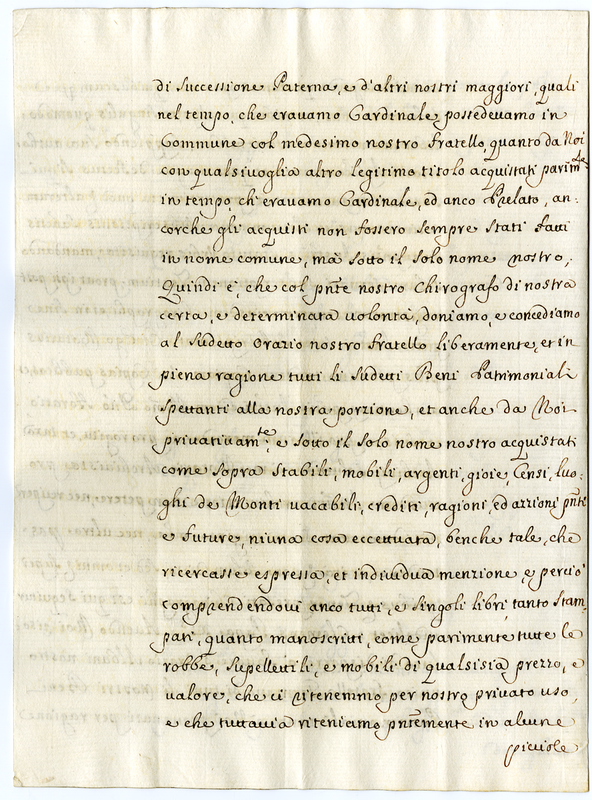 di Successione Paterna, e d'altri nostri maggiori, quali
nel tempo, che eravamo Cardinale, possedevamo in
Commune col medesimo nostro fratello, quanto da Noi
con qualsivoglia altro legitimo titolo acquistati parim.te
in tempo, ch'eravamo Cardinale, ed anco Prelato, an:
corche gli acquisti non fossero sempre stati fatti
in nome comune, mà sotto il solo nome nostro;
Quindi è, che col pnte nostro Chirografo di nostra
certa, e determinata volontà, doniamo, e concediamo
al Sudetto Orazio nostro fratello liberamente, et in
piena ragione tutti li Sudetti Beni Patrimoniali
spettanti alla nostra porzione, et anche da Noi
privativam.te, e sotto il solo nome nostro acquistati
come sopra stabili, mobili, argenti, gioie, Censi, luo:
ghi de Monti vacabili, crediti, ragioni, ed azzioni pnti
e future, niuna cosa eccettuata, benche tale, che
ricercasse espressa, et individua menzione, e perciò
comprendendovi anco tutti, e singoli libri, tanto stam
pati, quanto manoscritti, come parimente tutte le
robbe, supellettili, e mobili di qualsisia prezzo, e
valore, che ci ritenemmo per nostro privato uso,
e che tuttavia riteniamo pntemente in alcune
picciole